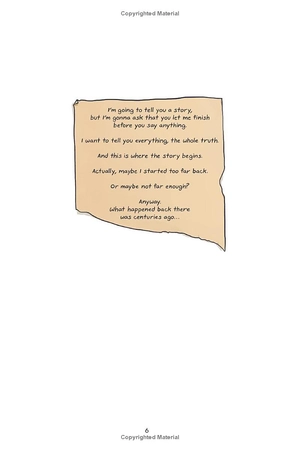 Copyrighted Material
I'm going to tell you a story,
but I'm gonna ask that you let me finish
before you say anything.
I want to tell you everything, the whole truth.
And this is where the story begins.
Actually, maybe I started too far back.
Or maybe not far enough?
Anyway.
What happened back there
was centuries ago...
6
Copyrighted Material